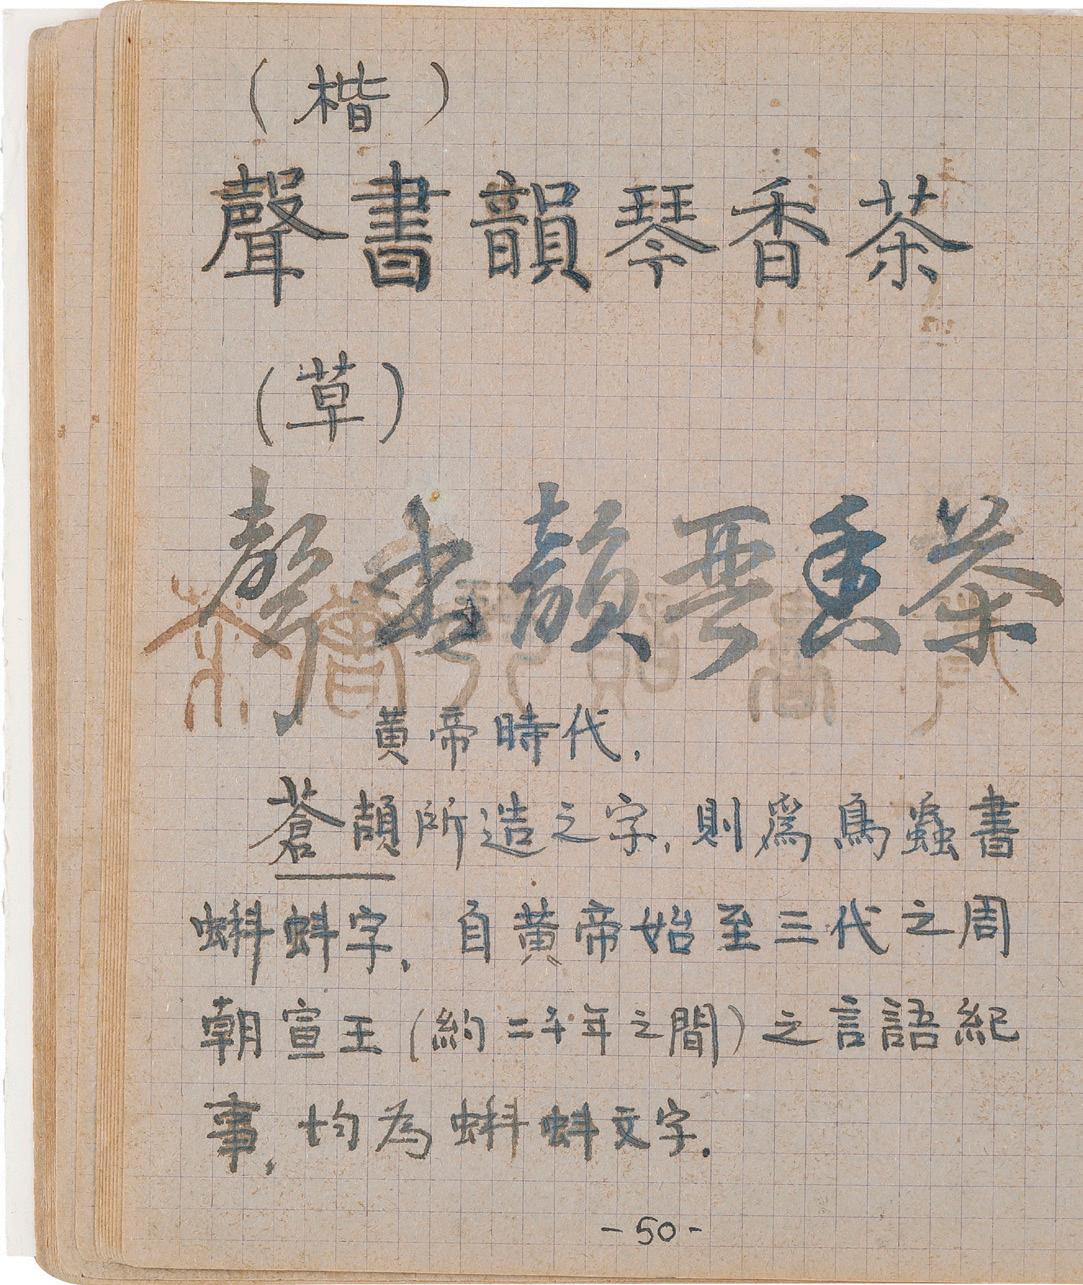 (楷)
茶香琴韻書聲
(草)
茶香琴韻書聲
黄帝時代,
蒼頡所造之字,則爲鳥蟲書
蝌蚪字,自黄帝始至三代之周
朝宣王(約二千年之間)之言語紀
事,均為蝌蚪文字.
-50-